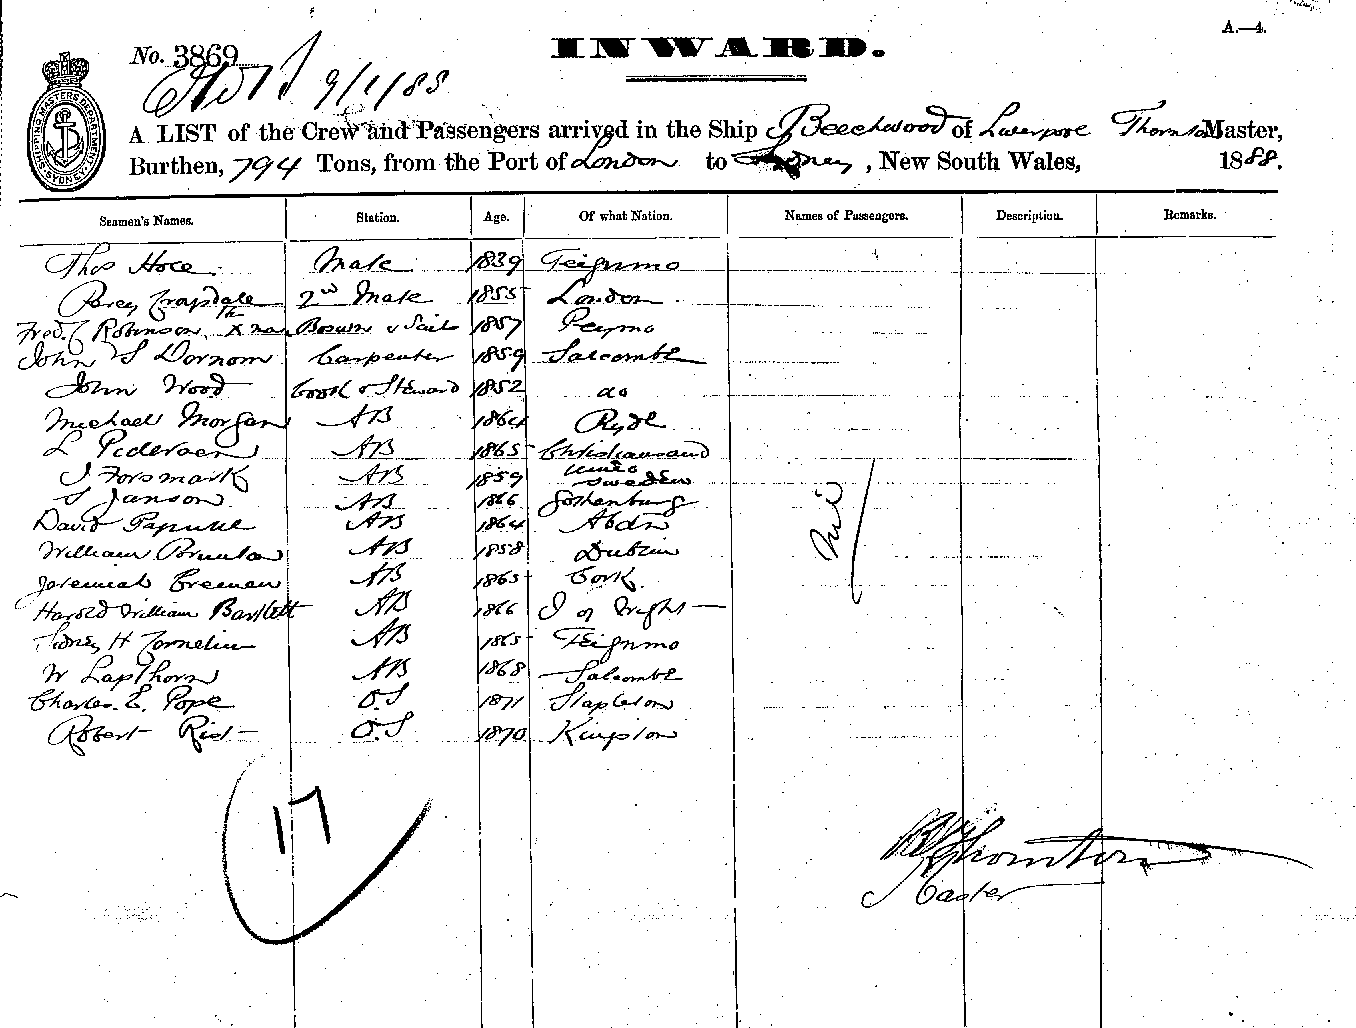 A.—4.
No. 3869
INWARD.
9/1/88
A LIST of the Crew and Passengers arrived in the Ship Beechwood of Liverpool Thornton Master,
Burthen, 794 Tons, from the Port of London to Sydney, New South Wales, 1888.
SHIPPING MASTERS DEPARTMENT SYDNEY
Seamen's Names. Station. Age. Of what Nation. Names of Passengers. Description. Remarks.
Thos Mate 1839 Teignmo
Percy 2nd Mate 1855 London
Fred. Robinson Bosun & Sails 1857 
John S Dornom Carpenter 1859 Salcombe
John Wood Cook & Steward 1852 do
Michael Morgan AB 1864 Ryde
L Pedersen AB 1865 Christiansand
J Forsmark AB 1859 Umea Sweden
S Janson AB 1866 Gothenburg
David AB 1864 Abdn
William Brunton AB 1858 Dublin
Jeremiah Creenan AB 1865 Cork.
Harold William Bartlett AB 1866 I of Wight
Sidney H Cornelius AB 1865 Teignmo
W Lapthorn AB 1868 Salcombe
Charles E. Pope O.S 1871 Stapleton
Robert Rist O.S 1870 Kingston
Nil
17
Thornton
Master